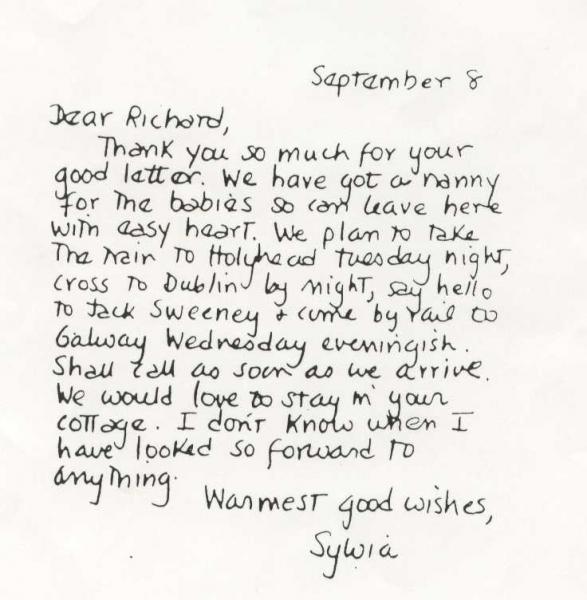 September 8
Dear Richard,
Thank you so much for your
good letter. We have got a nanny
for the babies so can leave here
with easy heart. We plan to take
The train to Holyhead Tuesday night,
cross to Dublin by night, say hello
to Jack Sweeney & come by rail to
Galway Wednesday eveningish.
Shall call as soon as we arrive.
We would love to stay in your
cottage. I don't know when I
have looked so forward to
anything.
Warmest good wishes,
Sylvia